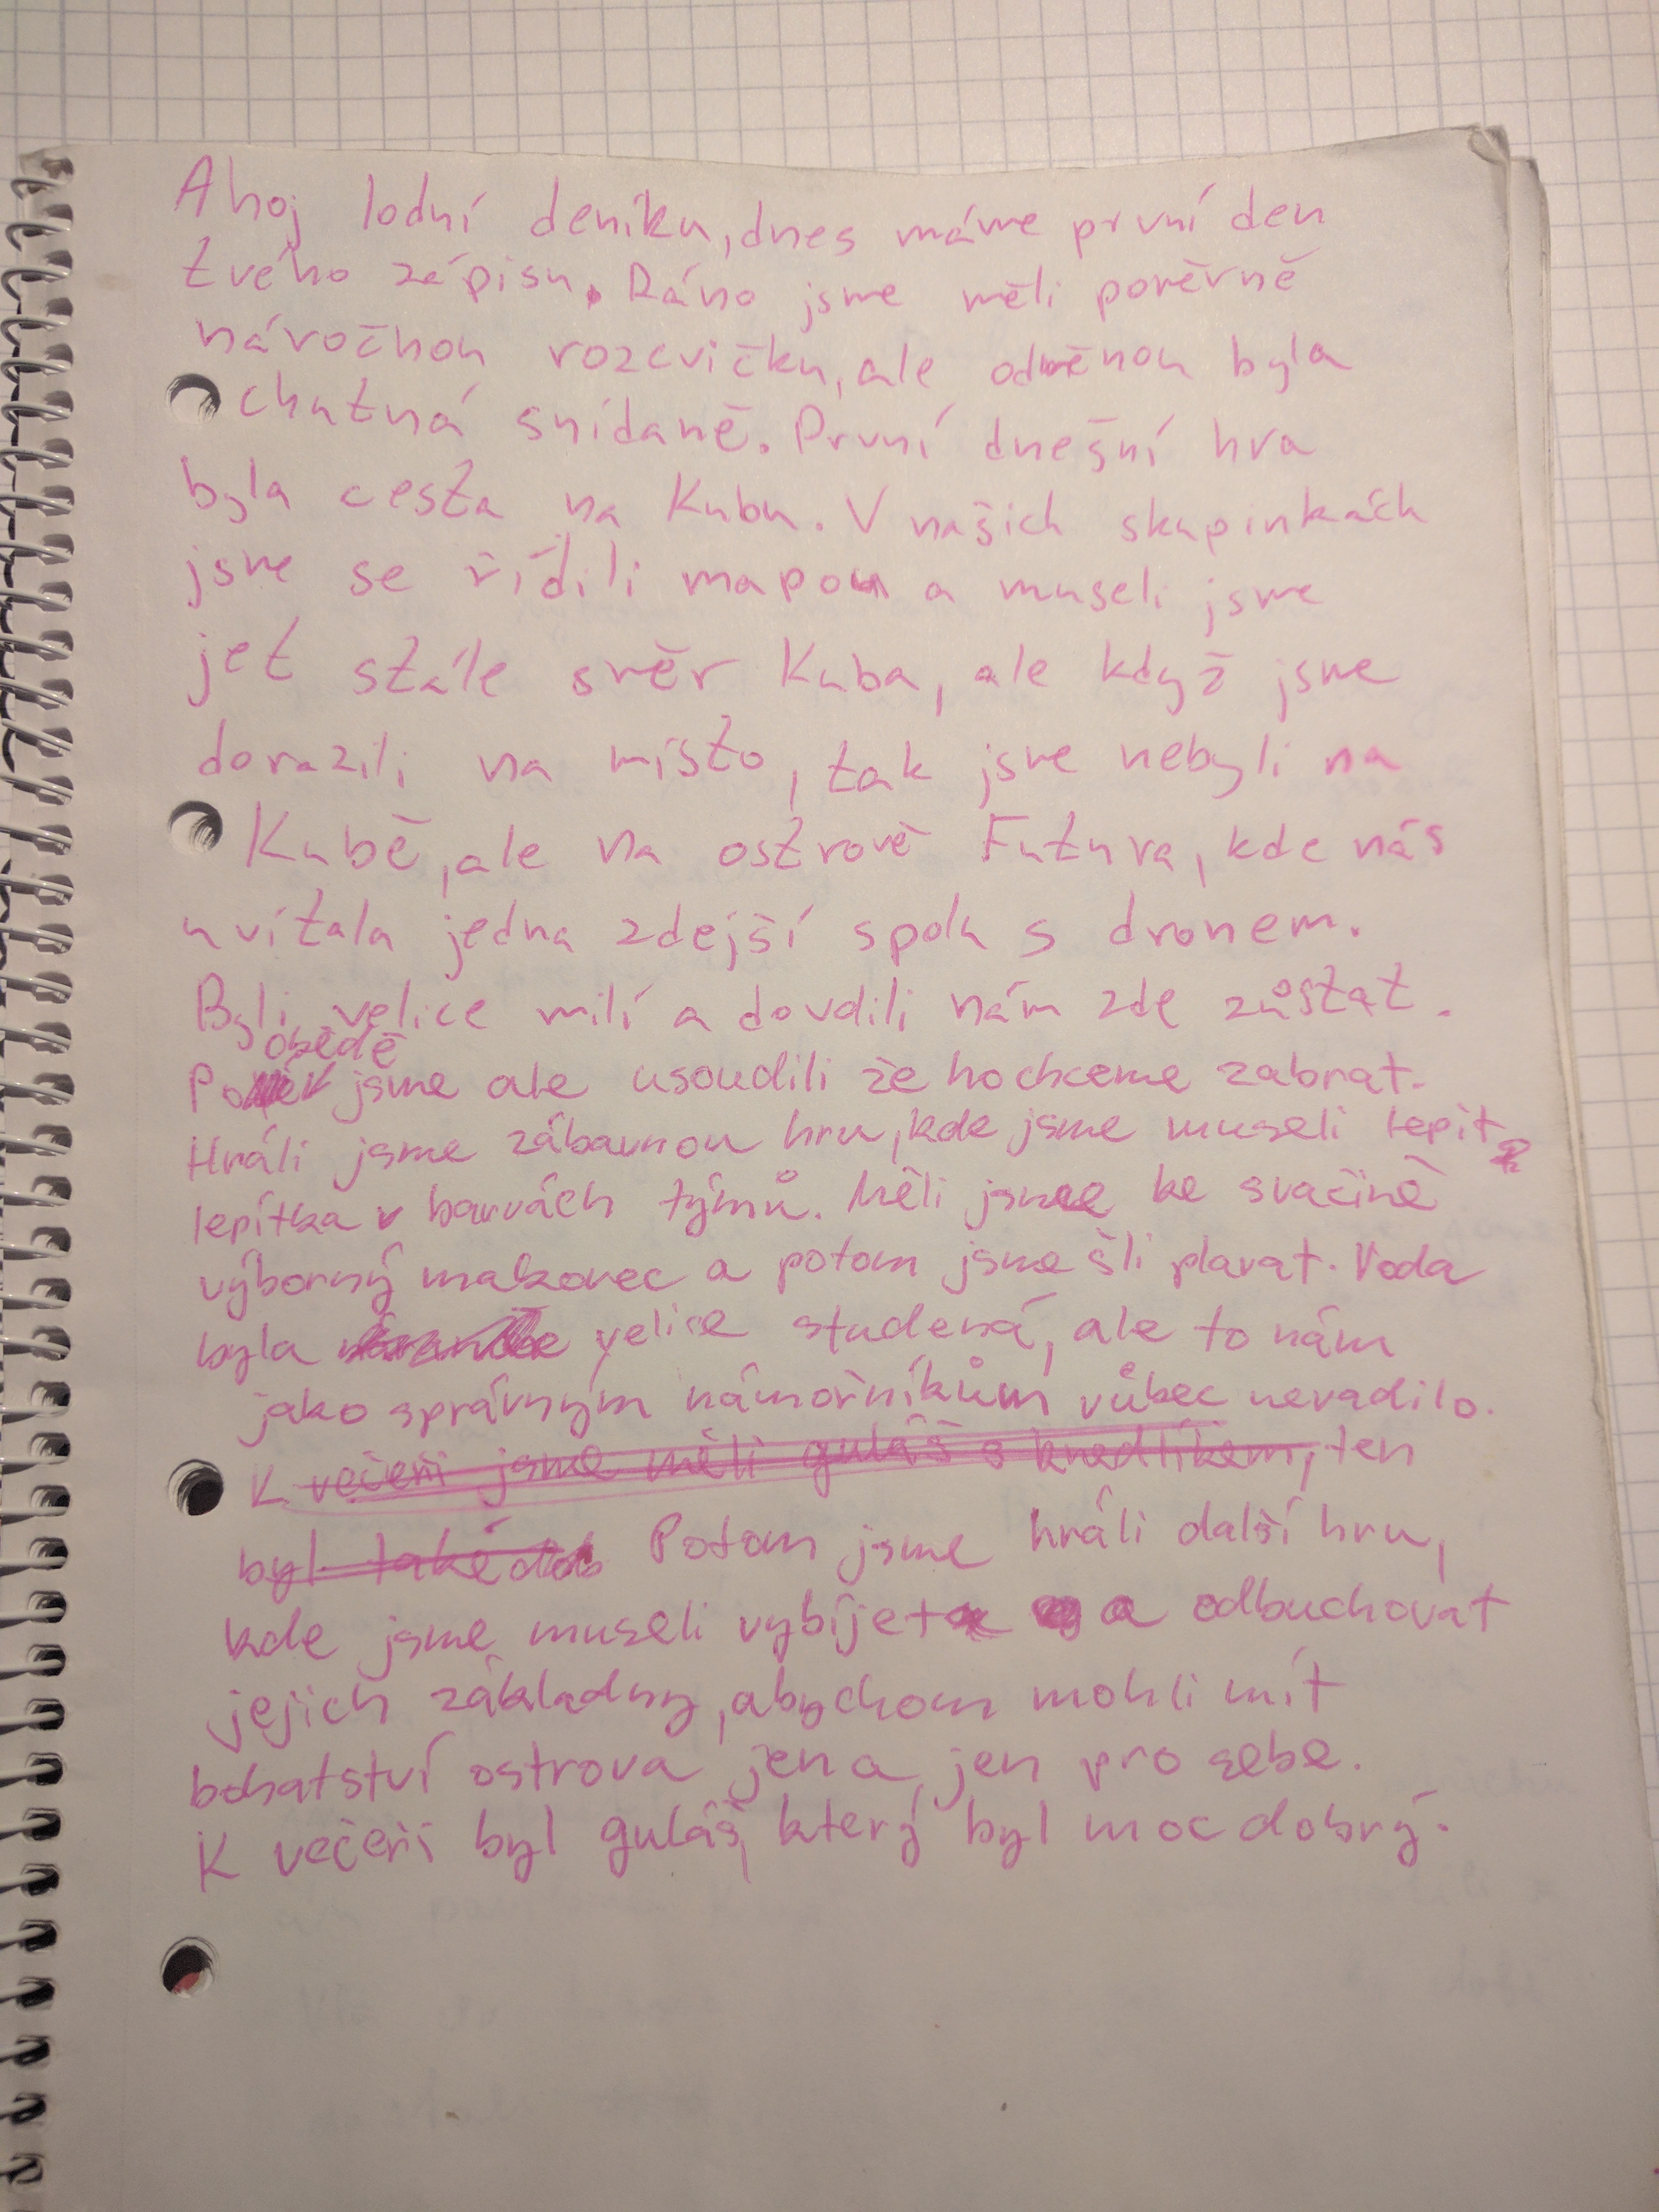 Ahoj lodní deníku, dnes máme první den
tvého zápisu. Ráno jsme měli poměrně
náročnou rozcvičku, ale odměnou byla
chutná snídaně. První dnešní hra
byla cesta na Kubu. V našich skupinkách
jsme se řídili mapou a museli jsme
jet stále směr Kuba, ale když jsme
dorazili na místo, tak jsme nebyli na
Kubě, ale na ostrově Futura, kde nás
uvítala jedna zdejší spolu s dronem.
Byli velice milí a dovolili nám zde zůstat.
obědě
Po jsme ale usoudili že ho chceme zabrat.
Hráli jsme zábavnou hru, kde jsme museli lepit
lepítka v barvách týmů. Měli jsme ke svačině
výborný makovec a potom jsme šli plavat. Voda
byla velice studená, ale to nám
jako správným námořníkům vůbec nevadilo.
K večeři jsme měli guláš s knedlíkem, ten
byl také dob Potom jsme hráli další hru,
kde jsme museli vybíjet a odbuchovat
jejich základny, abychom mohli mít
bohatství ostrova jen a jen pro sebe.
K večeři byl guláš, který byl moc dobrý.